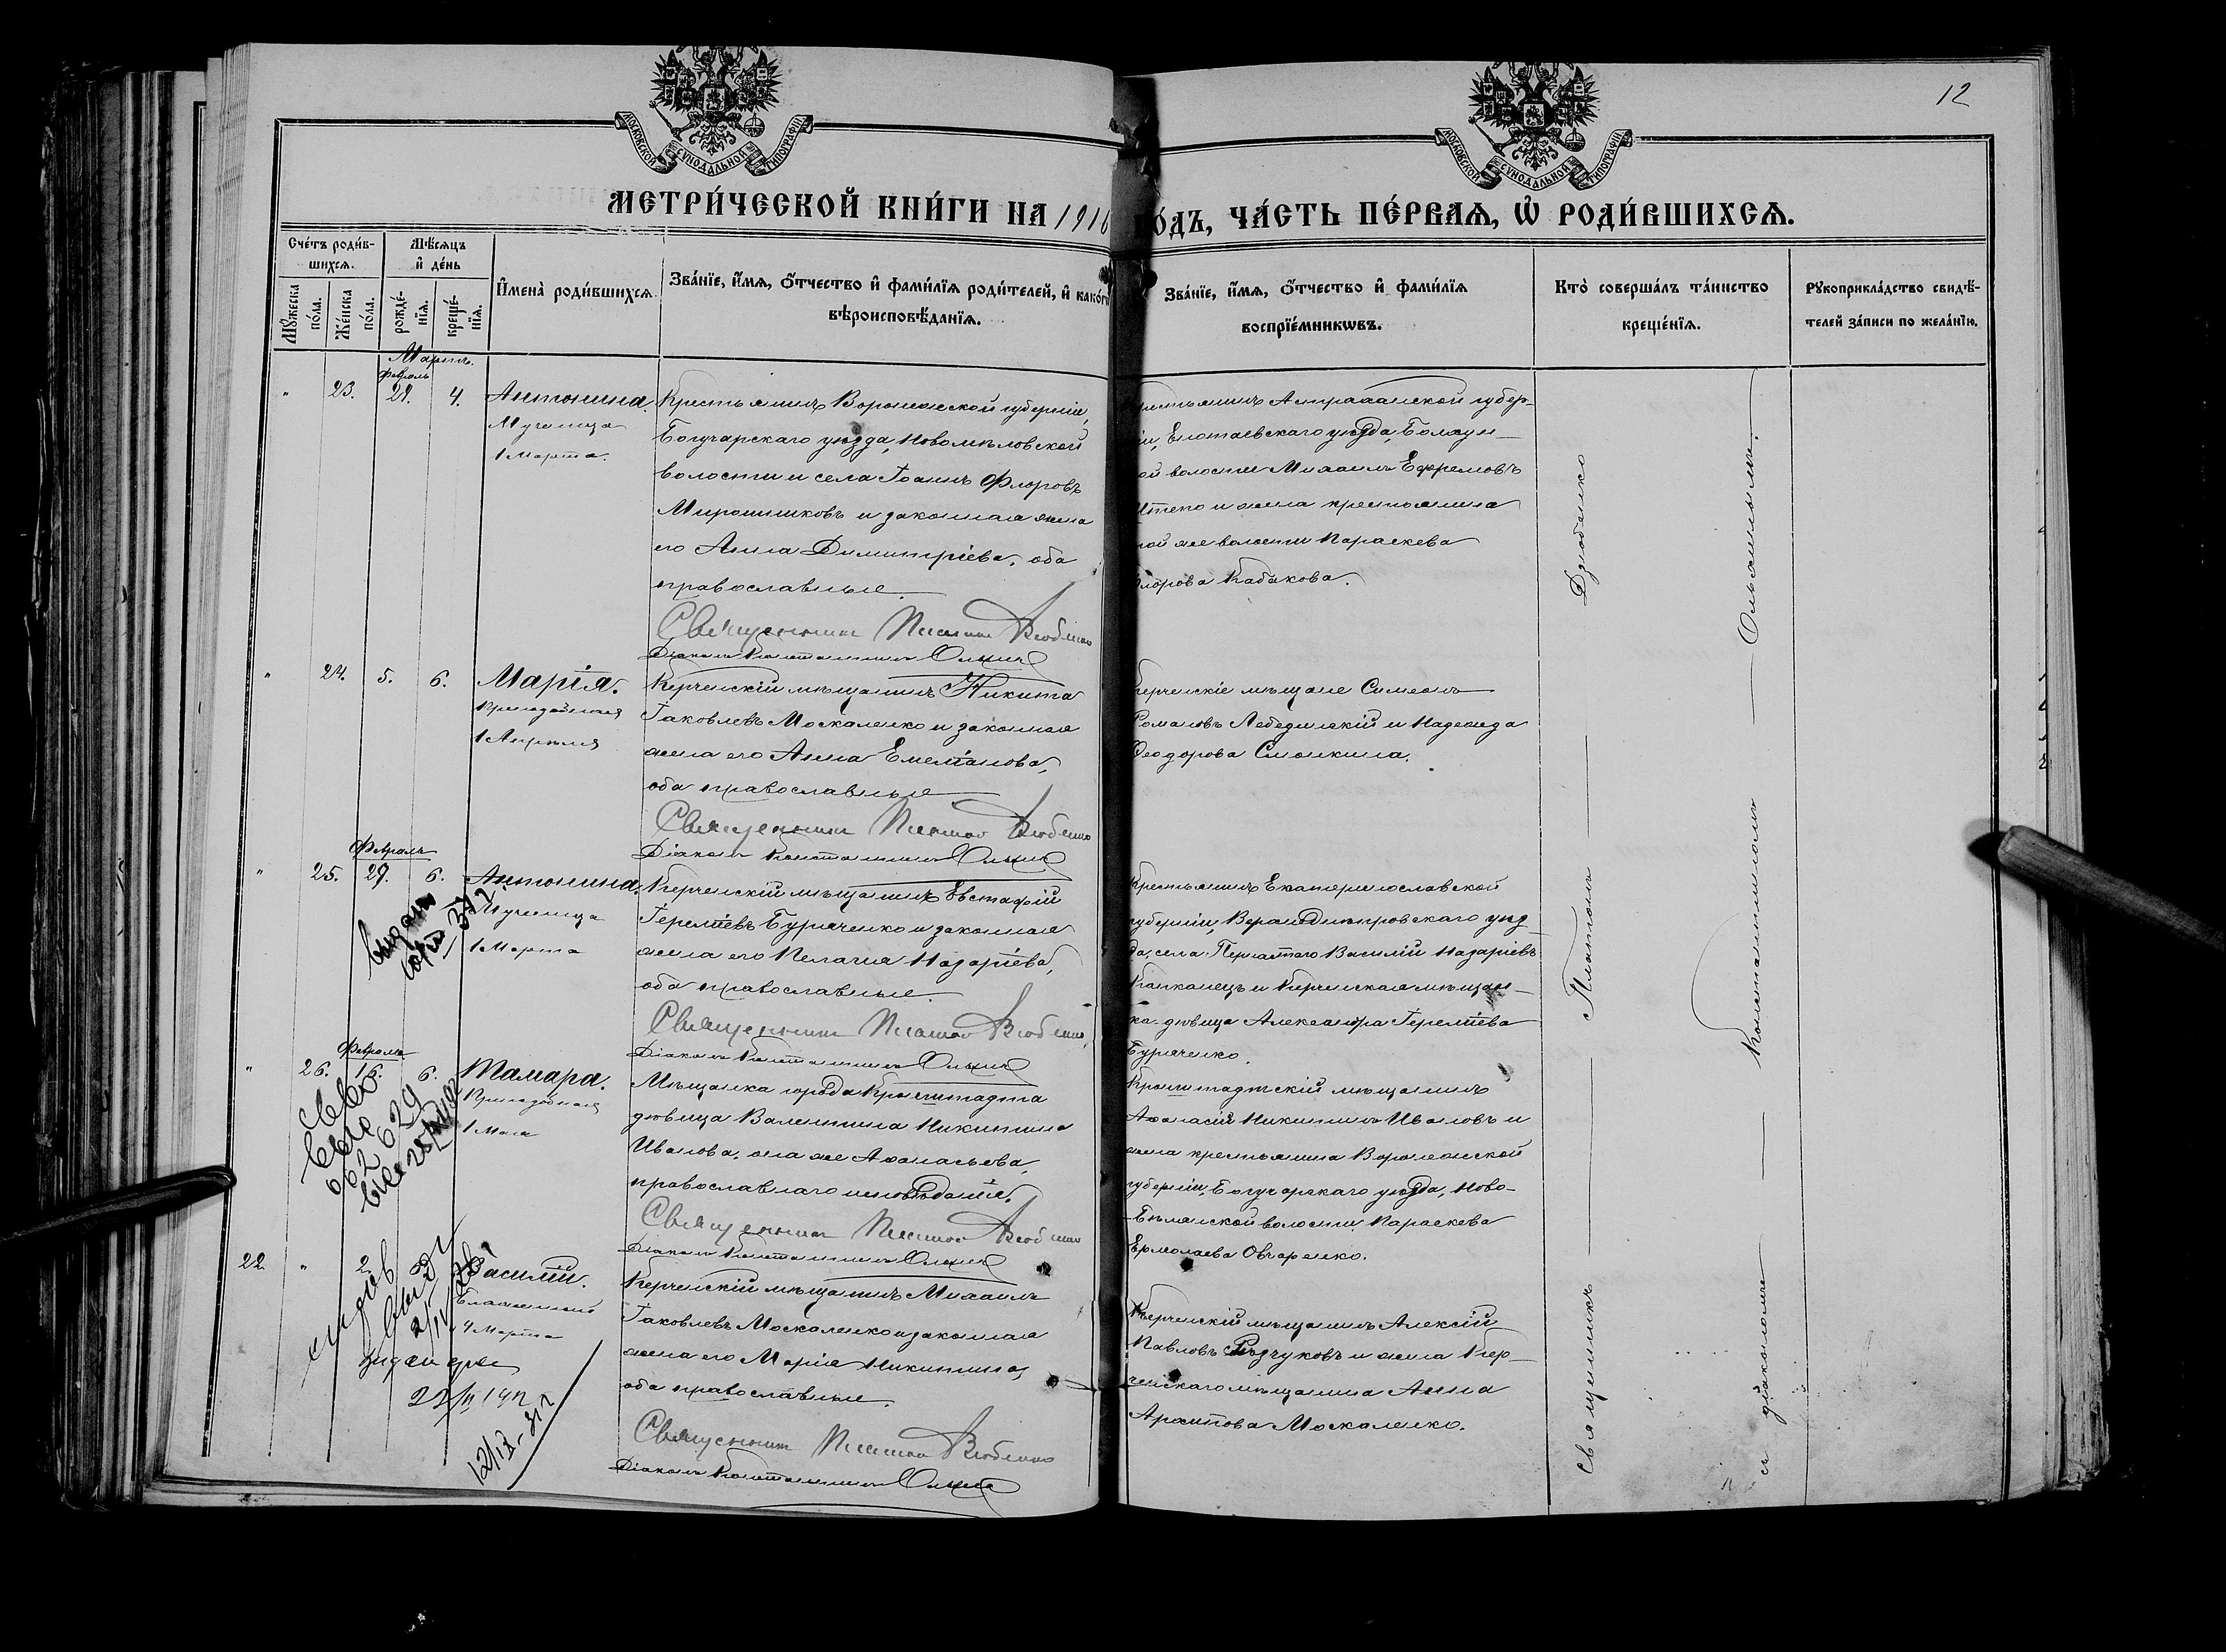 12
МОСКОВСКОЙ СѴНОДАЛЬНОЙ ТИПОГРАФІИ
МОСКОВСКОЙ СѴНОДАЛЬНОЙ ТИПОГРАФІИ
МЕТРИ́ЧЕСКОЙ КНИ́ГИ НА 1916
ГО́ДЪ, ЧА́СТЬ ПЕ́РВАѦ, Ѡ РОДИ́ВШИХСѦ.
Сче́тъ роди́в-
шихсѧ.
Мꙋ́жеска по́ла.
Же́нска по́ла.
Мѣ́сѧцъ
и҆ де́нь
рожде́-
нїѧ.
креще́-
нїѧ.
И҆мена̀ роди́вшихсѧ
Зва́нїе, и҆́мѧ, ѻ҆́тчество и҆ фами́лїѧ роди́телей, и҆ како́гѡ
вѣроисповѣ́данїѧ.
Зва́нїе, и҆́мѧ, ѻ҆́тчество и҆ фами́лїѧ
воспрїе́мникѡвъ.
Кто̀ соверша́лъ та́инство
креще́нїѧ.
Рꙋкоприкла́дство свидѣ́-
телей за́писи по жела́нїю.
Мартъ.
Февраль
" 23. 28. 4. Антонина.
Мученица
1 Марта.
Крестьянинъ Воронежской губерніи,
Богучарскаго уѣзда, Новомѣловской
волости и села Іоаннъ Флоровъ
Мирошниковъ и законная жена
его Анна Димитріева, оба
православные.
Священникъ Платонъ Дзюбенко
Діаконъ Константинъ
крестьянинъ Астраханской губер-
ніи, Енотаевскаго уѣзда, Болхун-
ской волости Михаилъ Ефремовъ
и жена крестьянина
той же волости Параскева
Флорова Кабакова.
" 24. 5. 6. Марія.
Преподобная
1 Апрѣля
Керченскій мѣщанинъ Никита
Іаковлевъ Москаленко и законная
жена его Анна Емеліанова,
оба православные
Священникъ Платонъ Дзюбенко
Діаконъ Константинъ
Керченскіе мѣщане Симеонъ
Романовъ Лебединскій и Надежда
Ѳеодорова Смонкина.
Февраль
" 25. 29. 6. Антонина.
Мученица
1 Марта
Керченскій мѣщанинъ Евстафій
Іереміевъ Буряченко и законная
жена его Пелагія Назаріева,
оба православные.
Священникъ Платонъ Дзюбенко
Діаконъ Константинъ
Крестьянинъ Екатеринославской
губерніи, Верхнеднѣпровскаго уѣз-
да, села Василій Назаріевъ
и Керченская мѣщан-
ка-дѣвица Александра Іереміева
Буряченко.
Февраль
" 26. 16. 6. Тамара.
Преподобная
1 Мая
Мѣщанка города Кронштадта
дѣвица Валентина Никитина
Иванова, она же Аѳанасьева,
православнаго исповѣданія.
Священникъ Платонъ Дзюбенко
Діаконъ Константинъ
Кронштадтскій мѣщанинъ
Аѳанасій Никитинъ Ивановъ и
жена крестьянина Воронежской
губерніи, Богучарскаго уѣзда, Ново-
Бѣлянской волости Параскева
Ермолаева Овчаренко.
22. " 2. Василій.
Блаженный
4 Марта
Керченскій мѣщанинъ Михаилъ
Іаковлевъ Москаленко и законная
жена его Марія Никитина,
оба православные.
Священникъ Платонъ Дзюбенко
Діаконъ Константинъ
Керченскій мѣщанинъ Алексій
Павловъ и жена Кер-
ченскаго мѣщанина Анна
Москаленко.
Священникъ Платонъ Дзюбенко
съ діакономъ Константиномъ